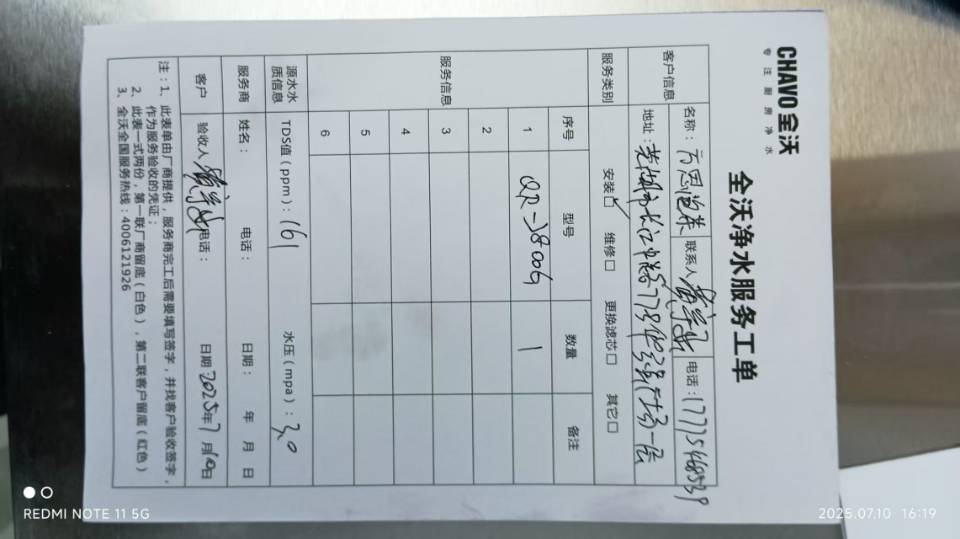 CHAVO全沃
专注厨房净水
全沃净水服务工单
客户信息 名称: 联系人 电话:
地址: 芜湖市长江中路
服务类别 安装☑ 维修□ 更换滤芯□ 其它□
服务信息 序号 型号 数量 备注
1 QR-3800G 1
2
3
4
5
6
源水水质信息 TDS值(ppm): 161 水压(mpa): 3.0
服务商 姓名: 电话: 日期: 年 月 日
客户 验收人 电话: 日期 2025年7月10日
注: 1、此表单由厂商提供, 服务商完工后需要填写签字, 并找客户验收签字,
作为服务验收的凭证;
2、此表一式两份, 第一联厂商留底(白色), 第二联客户留底(红色)
3、全沃全国服务热线: 4006121926
REDMI NOTE 11 5G
2025.07.10 16:19